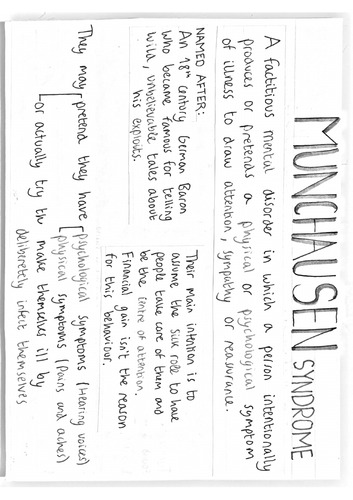 MUNCHAUSEN SYNDROME
A factitious mental disorder in which a person intentionally
produces or pretends a physical or psychological symptom
of illness to draw attention, sympathy or reassurance.
NAMED AFTER:
An 18th Century German Baron
who became famous for telling
wild, unbelievable tales about
his exploits.
Their main intention is to
assume the sick role to have
people take care of them and
be the centre of attention.
Financial gain isn't the reason
for this behaviour.
They may pretend they have psychological symptoms (Hearing voices)
physical symptoms (Pains and aches)
or actually try to make themselves ill by
deliberately infect themselves